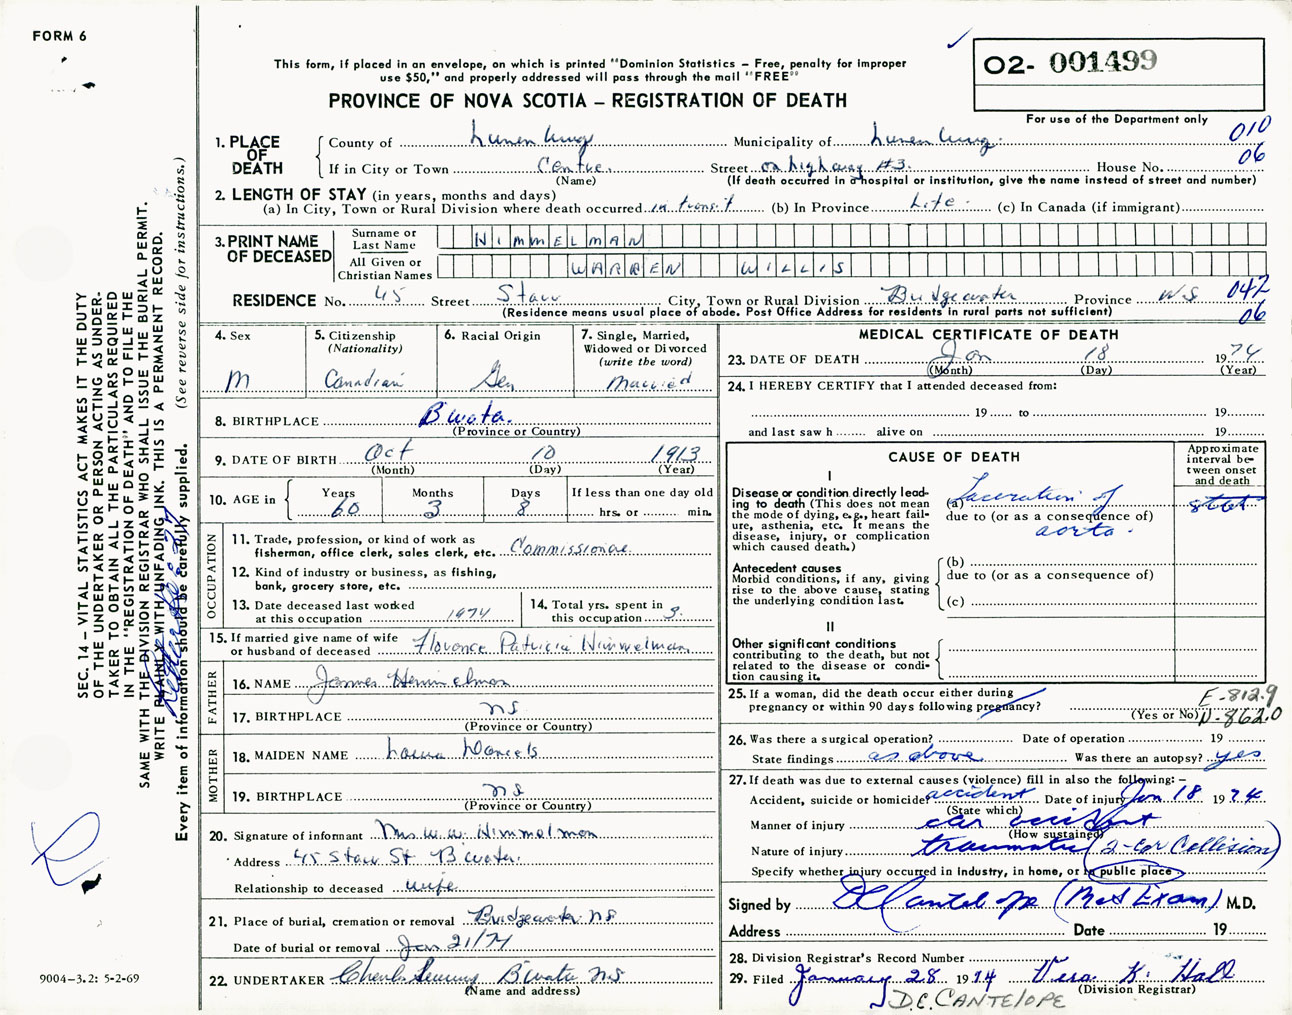 FORM 6
This form, if placed in an envelope, on which is printed "Dominion Statistics – Free, penalty for improper
use $50," and properly addressed will pass through the mail "FREE"
PROVINCE OF NOVA SCOTIA – REGISTRATION OF DEATH
O2- 001499
For use of the Department only
1. PLACE OF DEATH County of Lunenburg Municipality of Lunenburg 010
If in City or Town Centre Street on highway #3 House No. 06
(Name) (If death occurred in a hospital or institution, give the name instead of street and number)
2. LENGTH OF STAY (in years, months and days)
(a) In City, Town or Rural Division where death occurred in transit (b) In Province Life (c) In Canada (if immigrant)
3. PRINT NAME OF DECEASED
Surname or Last Name NIMMELMAN
All Given or Christian Names WARREN WILLIS
RESIDENCE No. 45 Street Starr City, Town or Rural Division Bridgewater Province N.S. 042
(Residence means usual place of abode. Post Office Address for residents in rural parts not sufficient) 06
4. Sex
M
5. Citizenship
(Nationality)
Canadian
6. Racial Origin
Ger
7. Single, Married,
Widowed or Divorced
(write the word)
Married
8. BIRTHPLACE B'water
(Province or Country)
9. DATE OF BIRTH Oct 10 1913
(Month) (Day) (Year)
10. AGE in Years Months Days If less than one day old
60 3 8 hrs. or min.
OCCUPATION
11. Trade, profession, or kind of work as
fisherman, office clerk, sales clerk, etc. Commissionaire
12. Kind of industry or business, as fishing,
bank, grocery store, etc.
13. Date deceased last worked
at this occupation 1974
14. Total yrs. spent in
this occupation 9
15. If married give name of wife
or husband of deceased Florence Patricia Himmelman
FATHER
16. NAME James Himmelman
17. BIRTHPLACE NS
(Province or Country)
MOTHER
18. MAIDEN NAME Laura Daniels
19. BIRTHPLACE NS
(Province or Country)
20. Signature of informant Mrs W.W. Himmelman
Address 45 Starr St. B'water
Relationship to deceased wife
21. Place of burial, cremation or removal Bridgewater NS
Date of burial or removal Jan 21/74
22. UNDERTAKER B'water NS
(Name and address)
MEDICAL CERTIFICATE OF DEATH
23. DATE OF DEATH Jan 18 1974
(Month) (Day) (Year)
24. I HEREBY CERTIFY that I attended deceased from:
19 to 19
and last saw h alive on 19
CAUSE OF DEATH
Approximate
interval be-
tween onset
and death
I
Disease or condition directly lead-
ing to death (This does not mean
the mode of dying, e.g., heart fail-
ure, asthenia, etc. It means the
disease, injury, or complication
which caused death.)
(a) Laceration of
due to (or as a consequence of)
aorta
Antecedent causes
Morbid conditions, if any, giving
rise to the above cause, stating
the underlying condition last.
(b)
due to (or as a consequence of)
(c)
II
Other significant conditions
contributing to the death, but not
related to the disease or condi-
tion causing it.
25. If a woman, did the death occur either during
pregnancy or within 90 days following pregnancy?
(Yes or No)
E-812.9
N-862.0
26. Was there a surgical operation? Date of operation 19
State findings as above Was there an autopsy? yes
27. If death was due to external causes (violence) fill in also the following: –
Accident, suicide or homicide? accident Date of injury Jan 18 1974
(State which)
Manner of injury car accident
(How sustained)
Nature of injury traumatic (2-car Collision)
Specify whether injury occurred in Industry, in home, or in public place
Signed by D C Cantelope (Med Exam) M.D.
Address Date 19
28. Division Registrar's Record Number
29. Filed January 28 1974 Vera K. Hall
(Division Registrar)
D.C. CANTELOPE
SEC. 14 – VITAL STATISTICS ACT MAKES IT THE DUTY
OF THE UNDERTAKER OR PERSON ACTING AS UNDER-
TAKER TO OBTAIN ALL THE PARTICULARS REQUIRED
IN THE "REGISTRATION OF DEATH" AND TO FILE THE
SAME WITH THE DIVISION REGISTRAR WHO SHALL ISSUE THE BURIAL PERMIT.
WRITE PLAINLY WITH UNFADING INK. THIS IS A PERMANENT RECORD.
Every item of information should be carefully supplied. (See reverse side for instructions.)
9004-3.2: 5-2-69